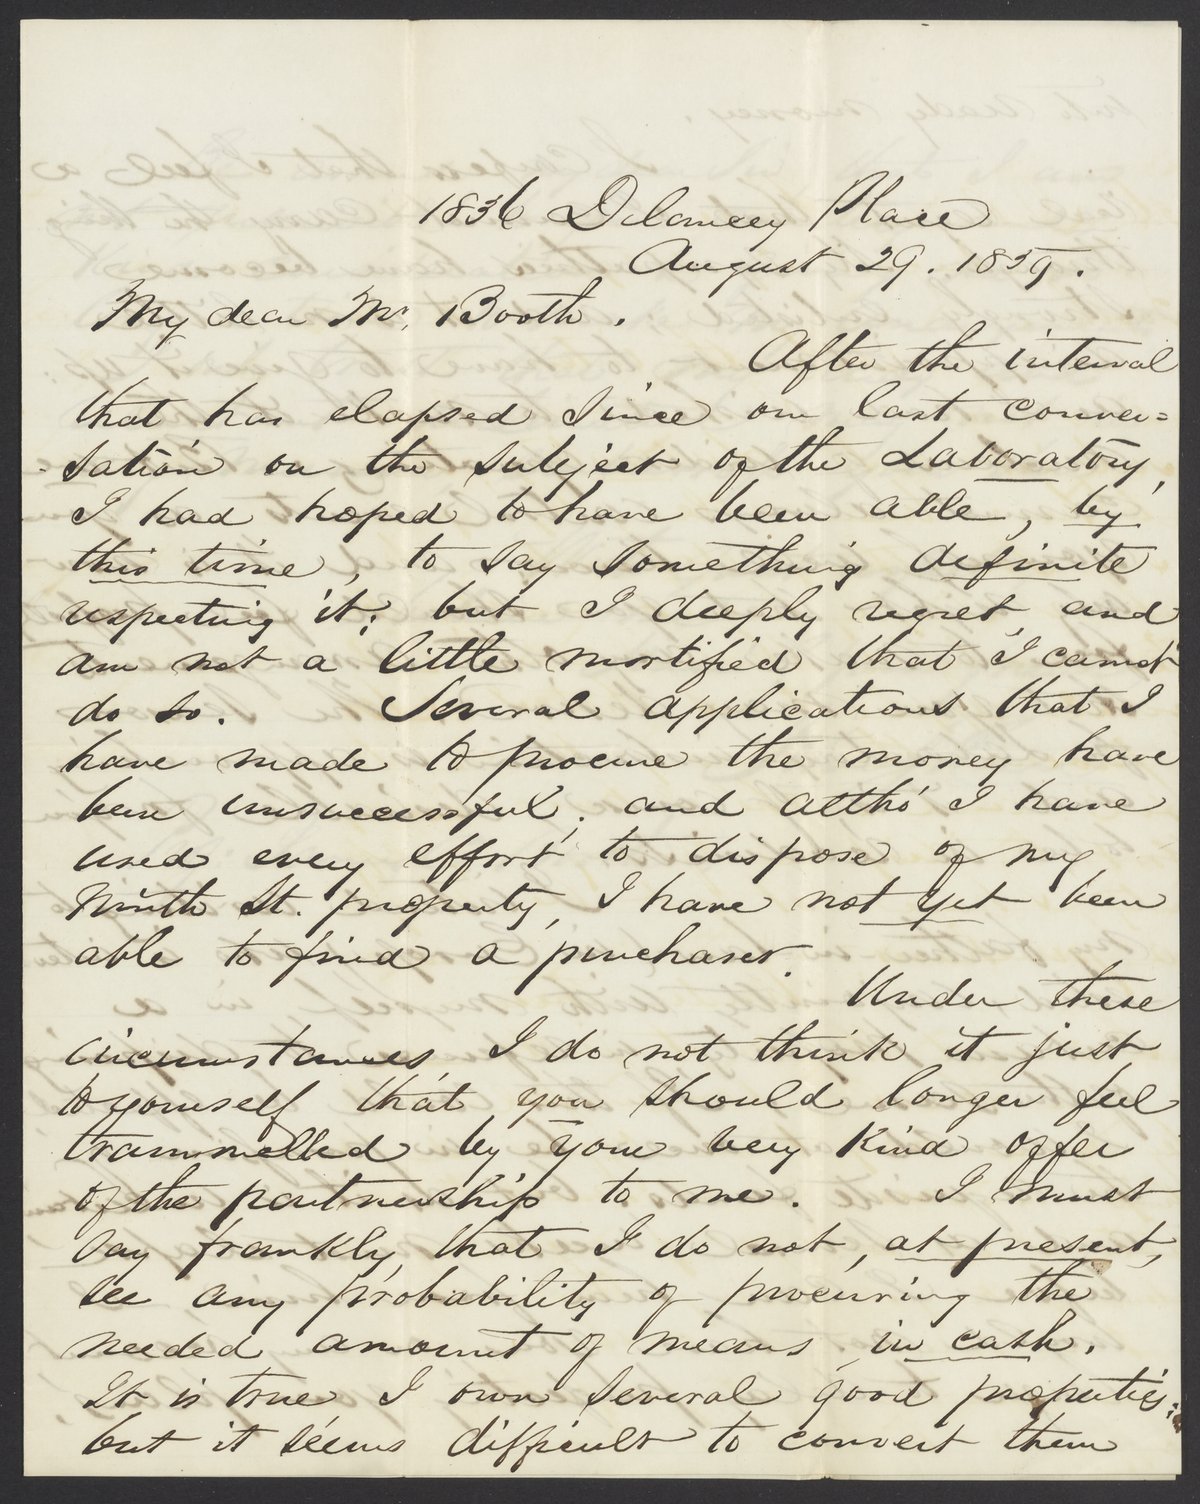 1836 Delancey Place
August 29. 1859.
My dear Mr. Booth.
After the interval
that has elapsed since our last conver=
sation on the subject of the Laboratory,
I had hoped to have been able, by
this time, to say something definite
respecting it; but I deeply regret, and
am not a little mortified that I cannot
do so. Several applications that I
have made to procure the money have
been unsuccessful; and altho' I have
used every effort to dispose of my
Ninth St. property, I have not yet been
able to find a purchaser.
Under these
circumstances, I do not think it just
to yourself that you should longer feel
trammelled by your very kind offer
of the partnership to me. I must
say frankly, that I do not, at present,
see any probability of procuring the
needed amount of means in cash.
It is true I own several good properties;
but it seems difficult to convert them